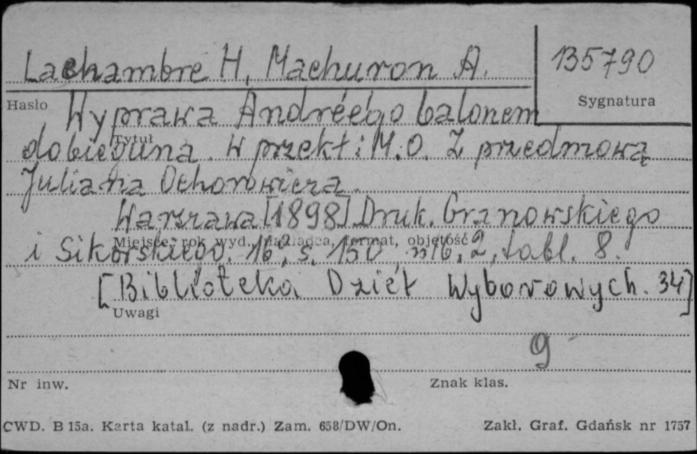 Lachambre H, Machuron A.
135790
Hasło
Sygnatura
Wyprawa Andréego balonem
Tytuł
do bieguna. W przekł: M.O. Z przedmową
Juliana Ochorowicza.
Warszawa [1898] Druk. Granowskiego
Miejsce, rok wyd., format, objętość
i Sikorskiego. 16², s. 150, 2, tabl. 8.
[Biblioteka Dzieł Wyborowych. 34]
Uwagi
9
Nr inw.
Znak klas.
CWD. B 15a. Karta katal. (z nadr.) Zam. 658/DW/On.
Zakł. Graf. Gdańsk nr 1757